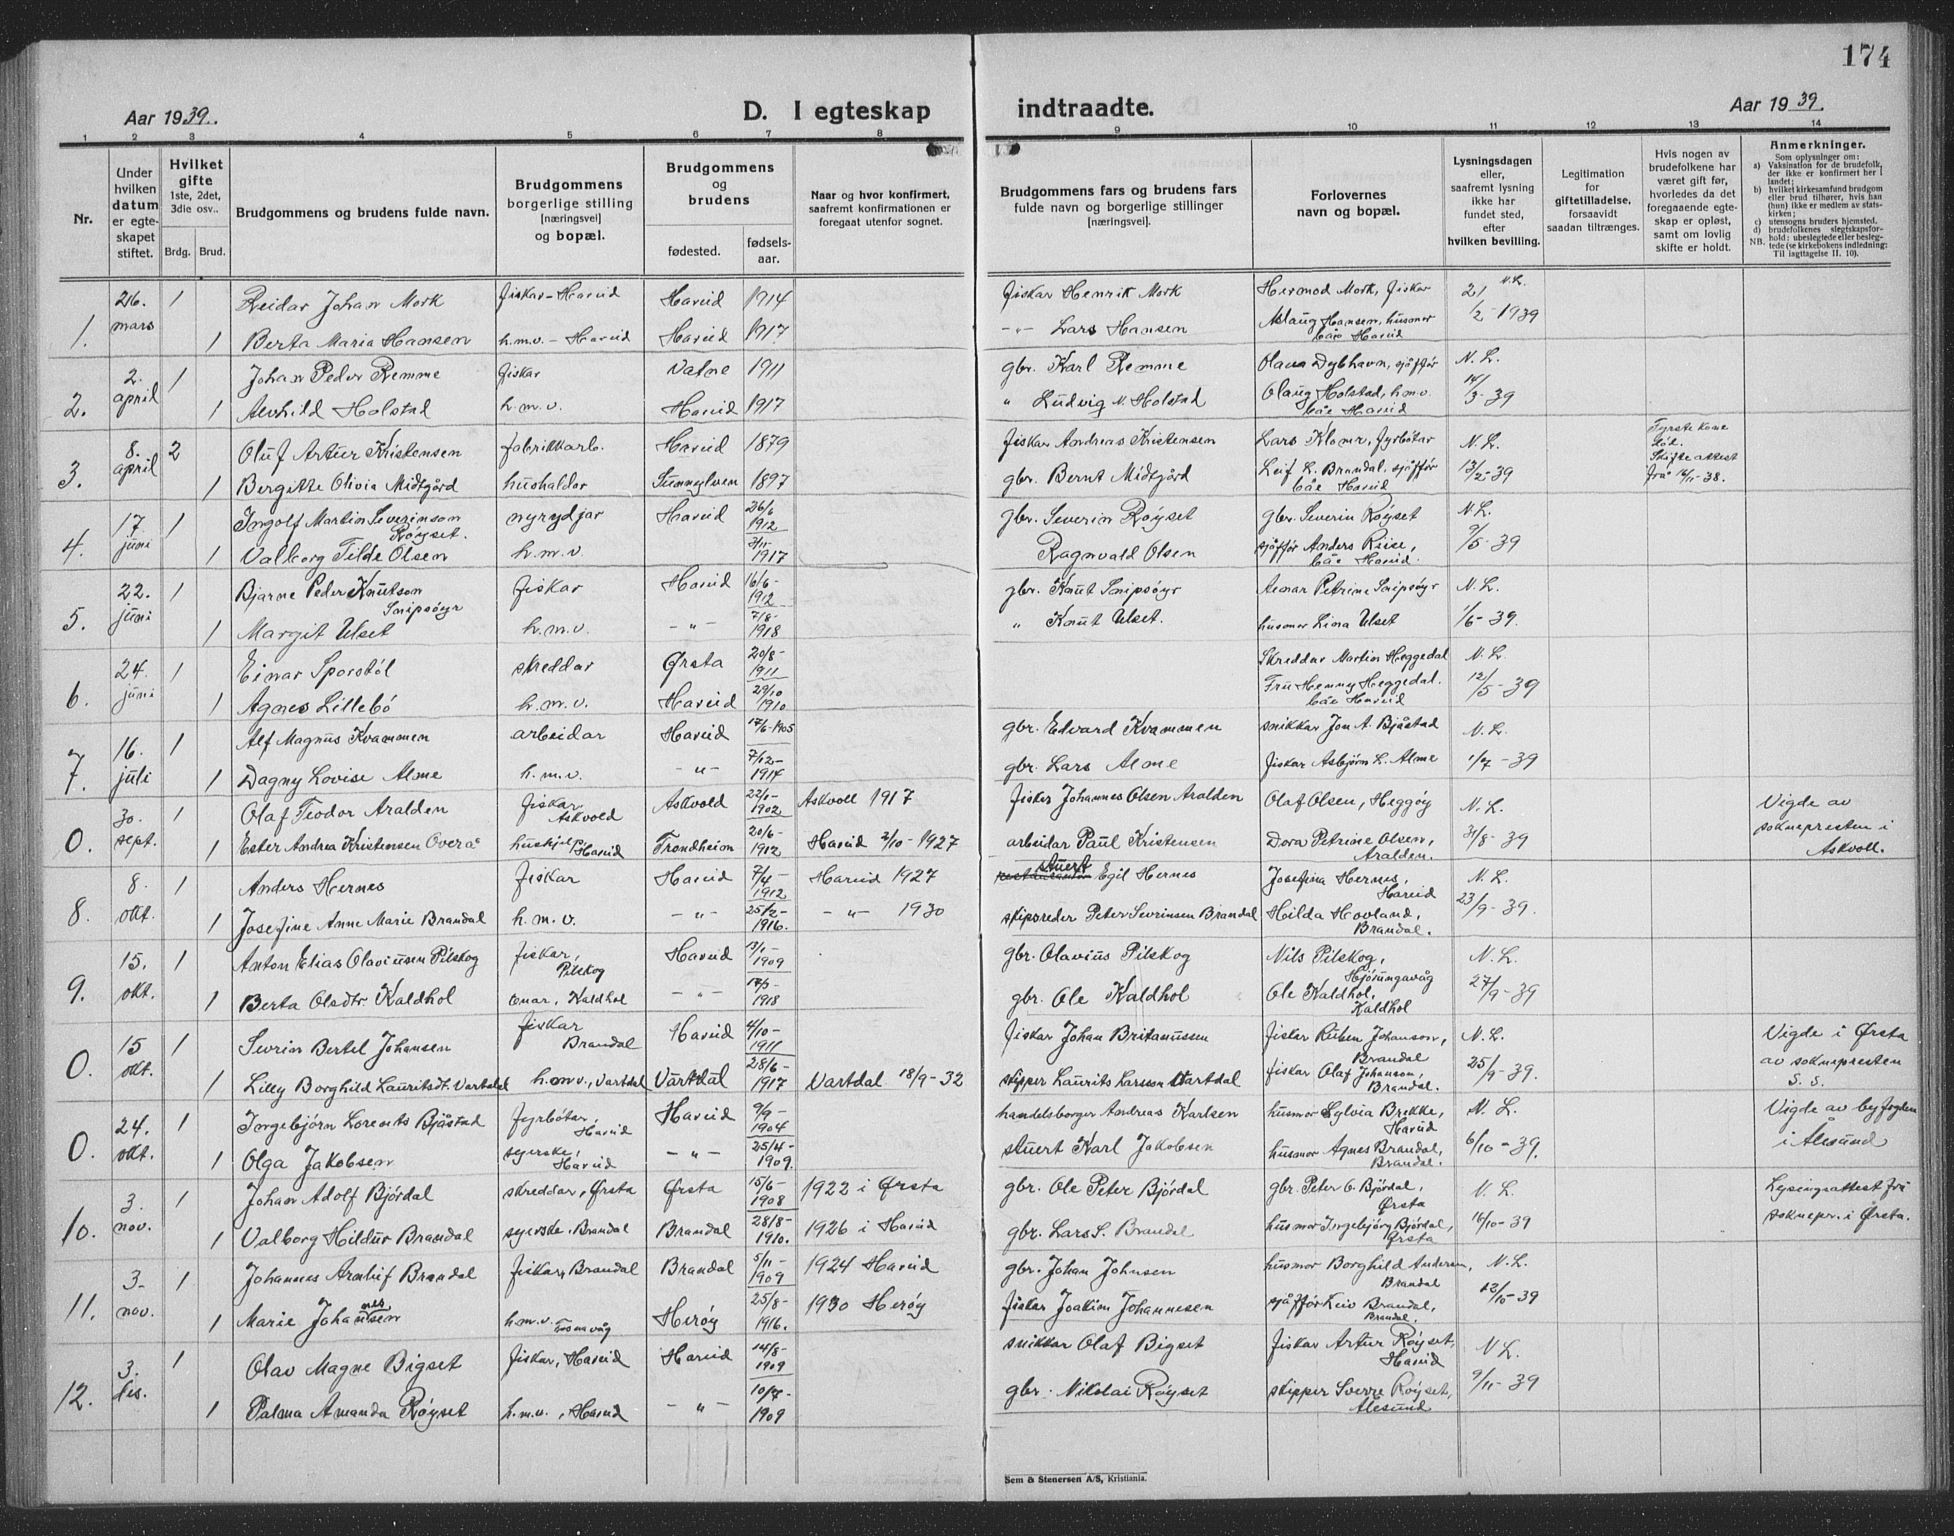 174
Aar 1939.
D. I egteskap
indtraadte.
Aar 1939.
1 2 3 4 5 6 7 8 9 10 11 12 13 14
Nr.
Under hvilken datum er egteskapet stiftet.
Hvilket gifte 1ste, 2det, 3die osv..
Brdg. Brud.
Brudgommens og brudens fulde navn.
Brudgommens borgerlige stilling [næringsvei] og bopæl.
Brudgommens og brudens
fødested.
fødsels-aar.
Naar og hvor konfirmert, saafremt konfirmationen er foregaat utenfor sognet.
Brudgommens fars og brudens fars fulde navn og borgerlige stillinger [næringsvei].
Forlovernes navn og bopæl.
Lysningsdagen eller, saafremt lysning ikke har fundet sted, efter hvilken bevilling.
Legitimation for giftetilladelse, forsaavidt saadan tiltrænges.
Hvis nogen av brudefolkene har været gift før, hvorledes da det foregaaende egteskap er opløst, samt om lovlig skifte er holdt.
Anmerkninger.
Som oplysninger om:
a) Vaksination for de brudefolk, der ikke er konfirmert her i landet;
b) hvilket kirkesamfund brudgom eller brud tilhører, hvis han (hun) ikke er medlem av statskirken;
c) utensogns bruders hjemsted.
d) brudefolkenes slegtskapsforhold: ubeslegtede eller beslegtede (se kirkebokens indledning: NB. Til iagttagelse II. 10).
1. 26. mars 1 Reidar Johan Mork fiskar - Hareid Hareid 1914 fiskar Henrik Mork Hermod Mork, fiskar 21/2-1939 N.L.
1 Berta Maria Hansen h.m.v. - Hareid Hareid 1917 -"- Lars Hansen Aslaug Hansen, husmor båe Hareid
2. 2. april 1 Johan Peder Remme fiskar Vatne 1911 gbr. Karl Remme Dybhavn, sjåffør N.L.
1 Alvhild Holstad h.m.v. Hareid 1917 " Ludvig N. Holstad Olaug Holstad, h.m.v. båe Hareid 14/3-39
3. 8. april 2 Oluf Artur Kristensen fabrikkarb. Hareid 1879 fiskar Andreas Kristensen Lars Klomr, fyrbøtar N.L. Fyrste kone død. Skifteattest frå 16/11-38.
1 Bergitte Olivia Midtgård hushaldar Sunnylven 1897 gbr. Bernt Midtgård Leif L. Brandal, sjåffør båe Hareid 13/2-39
4. 17. juni 1 Ingolf Martin Severinson Røyset. nyrydjar Hareid 26/6 1912 gbr. Severin Røyset gbr. Severin Røyset N.L.
1 Valborg Tilde Olsen h.m.v. 2/11- 1917 Ragnvald Olsen sjåffør Anders Riise, båe Hareid. 9/5-39
5. 22. juni 1 Bjarne Peder Knutson Snipsøyr fiskar Hareid 16/6- 1912 gbr. Knut Snipsøyr Petrine Snipsøyr N.L.
1 Margit Ulset h.m.v. -"- 7/8- 1918 " Knut Ulset. husmor Lina Ulset 1/6-39.
6. 24. juni 1 Einar Sporstøl skreddar Ørsta 20/8- 1911 Skreddar Martin Heggedal N.L.
1 Agnes Lillebø h.m.v. Hareid 29/10 1910 Fru Henny Heggedal. båe Hareid 12/5-39
7. 16. juli 1 Alf Magnus Kvammen arbeidar Hareid 17/6-1905 gbr. Edvard Kvammen snikkar Jon A. Bjåstad N.L.
1 Dagny Lovise Alme h.m.v. -"- 7/12- 1914 gbr. Lars Alme fiskar Asbjørn L. Alme 1/7-39
0. 30. sept. 1 Olaf Teodor Aralden fiskar Askvold Askvold 22/1- 1902 Askvoll 1917 fisker Johannes Olsen Aralden Olaf Olsen, Heggøy N.L. Vigde av soknepresten i Askvoll.
1 Ester Andrea Kristensen Overå hushjelp Hareid Trondheim 20/6- 1912 Hareid 2/10-1927 arbeidar Paul Kristensen Dora Petrine Olsen, Aralden. 31/8-39
8. 8. okt. 1 Anders Hernes fiskar Hareid 7/4- 1912 Hareid 1927 stuert Egil Hernes Josefina Hernes, Hareid N.L.
1 Josefine Anne Marie Brandal h.m.v. -"- 25/2- 1916. -"- 1930 skipsreder Peter Sevrinsen Brandal Hilda Hovland, Brandal. 23/9-39.
9. 15. okt. 1 Anton Elias Olaviusen Pilskog fiskar, Pilskog Hareid 13/1- 1909 gbr. Olavius Pilskog Nils Pilskog, Hjørungavåg N.L.
1 Berta Oladtr Kaldhol Kaldhol -"- 1918 gbr. Ole Kaldhol Ole Kaldhol, Kaldhol 27/9-39
0. 15 okt. 1 Sevrin Bertel Johansen fiskar Brandal Hareid 4/10- 1911 fiskar Johan Britanussen fiskar Ruben Johanson, Brandal N.L. Vigde i Ørsta av soknepresten S.S.
1 Lilly Borghild Lauritsdt. Vartdal h.m.v., Vartdal Vartdal 28/6- 1917 Vartdal 18/9-32 skipper Laurits Larssen Vartdal fiskar Olaf Johanson, Brandal. 25/9-39.
0. 24. okt. 1 Ingebjørn Lorents Bjåstad fyrbøtar, Hareid Hareid 9/9- 1904 handelsborger Andreas Karlsen husmor Sylvia Brekke, Hareid N.L. Vigde av byfogden i Ålesund
1 Olga Jakobsen syerske, Hareid -"- 25/4- 1909. stuert Karl Jakobsen husmor Agnes Brandal, Brandal. 6/10-39.
10. 3. nov. 1 Johan Adolf Bjørdal skreddar, Ørsta Ørsta 15/6- 1908 1922 i Ørsta gbr. Ole Peter Bjørdal gbr. Peter O. Bjørdal, Ørsta N.L. Lysingsattest frå soknepr. i Ørsta.
1 Valborg Hildur Brandal syerske, Brandal Brandal 28/8- 1910. 1926 i Hareid gbr. Lars S. Brandal husmor Ingebjørg Bjørdal, Ørsta 16/10-39
11. 3- nov. 1 Johannes Arnhif Brandal fiskar, Brandal Brandal 5/11- 1909 1924 Hareid gbr. Johan Johnsen husmor Borghild Andersen, Brandal N.L.
1 Marie Johannesen h.m.v. Herøy 25/8- 1916. 1930 Herøy fiskar Joakim Johannesen sjåffør Brandal, Brandal. 12/10-39
12. 3. des. 1 Olav Magne Bigset fiskar, Hareid Hareid 14/8- 1909 snikkar Olaf Bigset fiskar Artur Røyset, Hareid N.L.
1 Palma Amanda Røyset h.m.v., Hareid -"- 10/7- 1909 gbr. Nikolai Røyset skipper Sverre Røyset, Ålesund 9/11-39
Sem & Stenersen A/S, Kristiania.